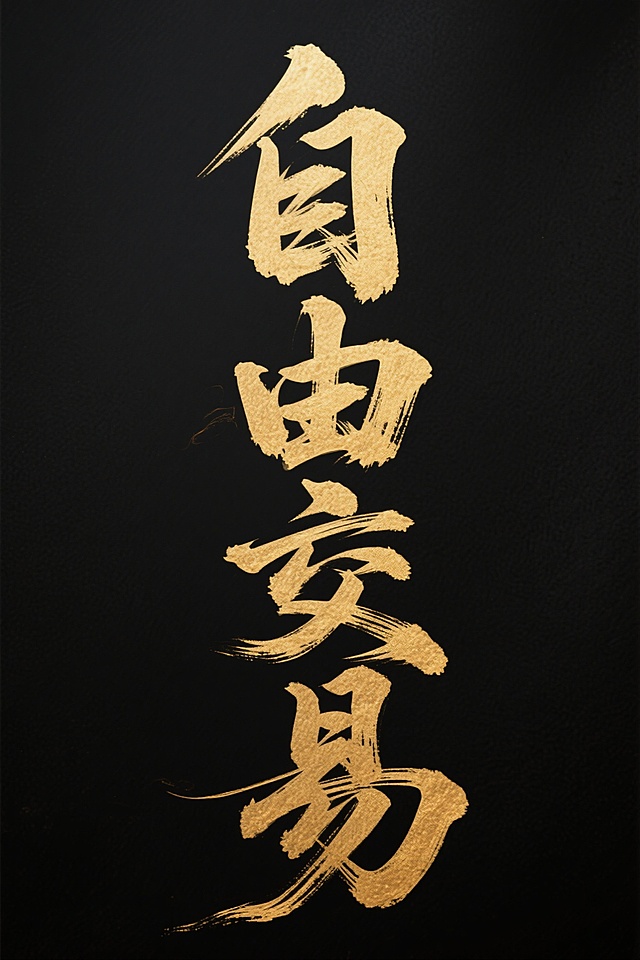 自由交易